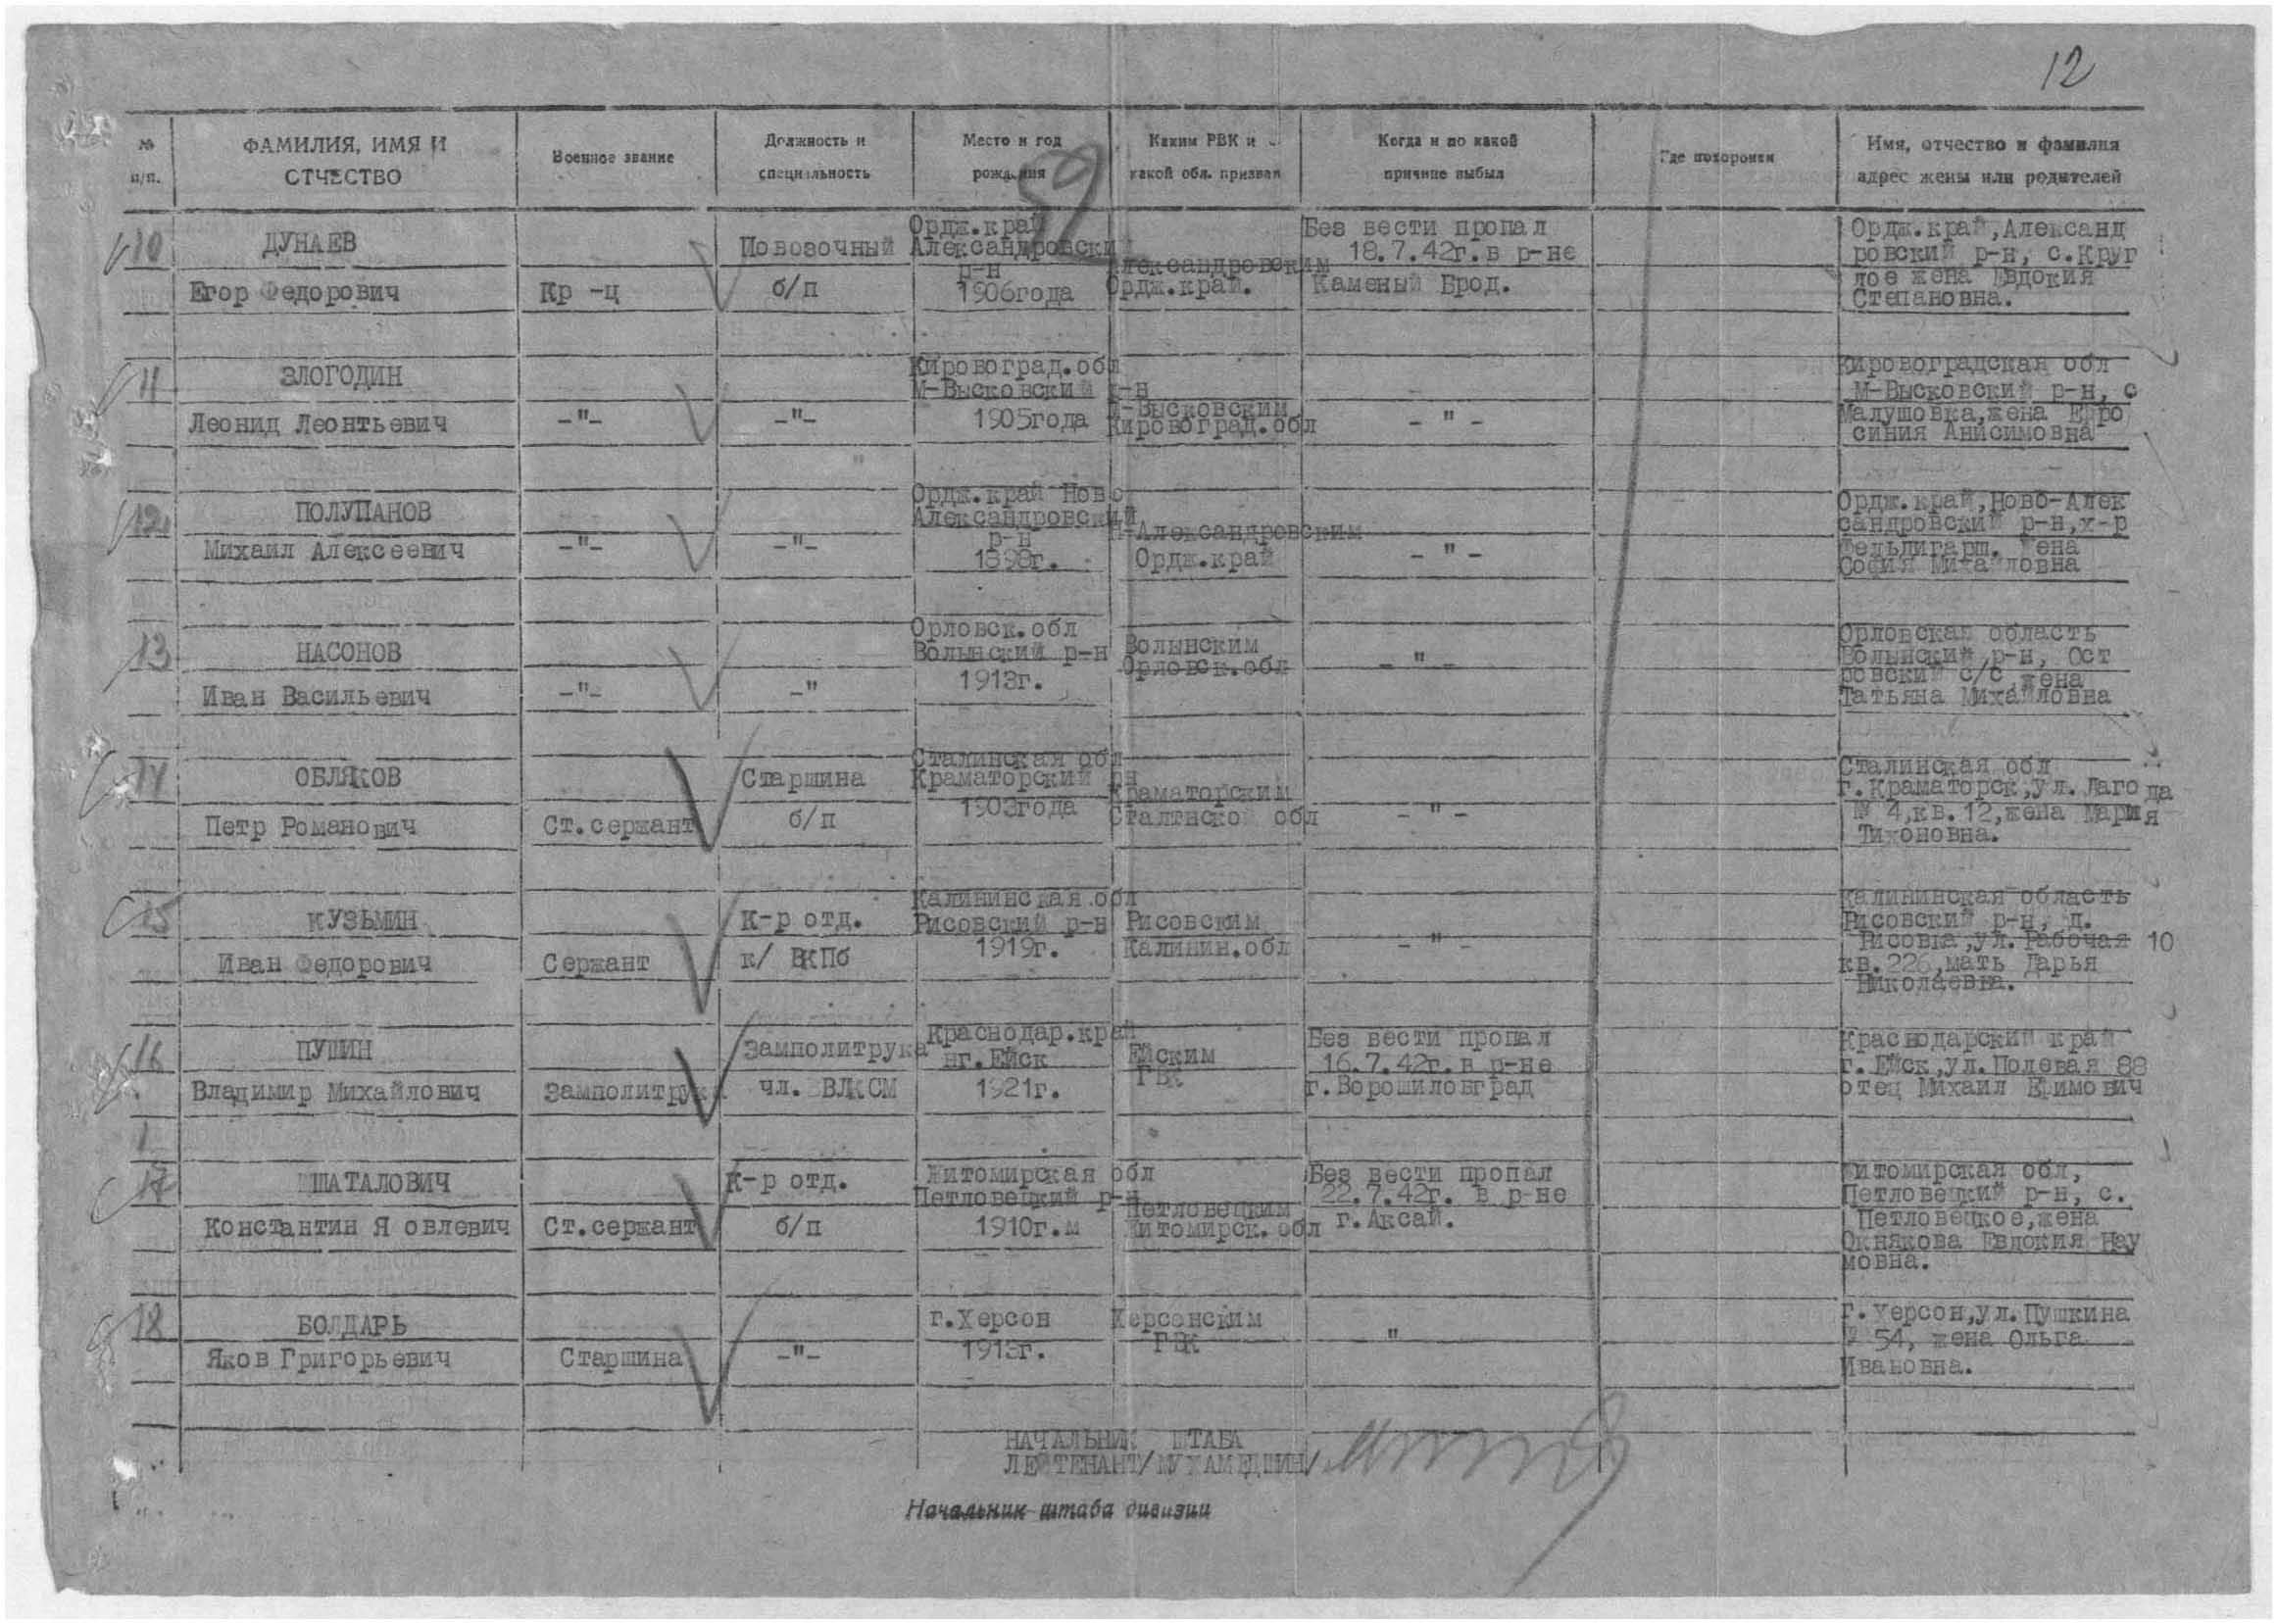 12
№ п/п.
ФАМИЛИЯ, ИМЯ И ОТЧЕСТВО
Военное звание
Должность и специальность
Место и год рождения
Каким РВК и какой обл. призван
Когда и по какой причине выбыл
Где похоронен
Имя, отчество и фамилия адрес жены или родителей
59
10
ДУНАЕВ
Егор Федорович
Кр -ц
Повозочный
б/п
Ордж.край
Александровски
р-н
1906года
Александровским
Ордж.край.
Без вести пропал
18.7.42г.в р-не
Каменый Брод.
Ордж.край,Александ
ровский р-н, с.Круг
лое жена Евдокия
Степановна.
11
ЗЛОГОДИН
Леонид Леонтьевич
-"-
-"-
Кировоград.обл
М-Высковский р-н
1905года
М-Высковским
Кировоград.обл
- " -
Кировоградская обл
М-Высковский р-н, с
Малушовка,жена Ефро
синия Анисимовна
12
ПОЛУПАНОВ
Михаил Алексеевич
-"-
-"-
Ордж.край Ново
Александровский
р-н
1898г.
Н-Александровским
Ордж.край
- " -
Ордж.край,Ново-Алек
сандровский р-н,х-р
Фельдигарш. жена
София Михайловна
13
НАСОНОВ
Иван Васильевич
-"-
-"
Орловск.обл
Волынский р-н
1913г.
Волынским
Орловск.обл
- " -
Орловская область
Волынский р-н, Ост
ровский с/с жена
Татьяна Михайловна
14
ОБЛЯКОВ
Петр Романович
Ст.сержант
Старшина
б/п
Сталинская обл
Краматорский рн
1903года
Краматорским
Сталтнской обл
- " -
Сталинская обл
г.Краматорск,ул.Лагода
№ 4,кв.12,жена Мария
Тихоновна.
15
КУЗЬМИН
Иван Федорович
Сержант
К-р отд.
к/ ВКПб
Калининская.обл
Рисовский р-н
1919г.
Рисовским
Калинин.обл
- " -
Калининская область
Рисовский р-н, д.
Рисовка,ул.Рабочая 10
кв.226,мать Дарья
Николаевна.
16
ПУШИН
Владимир Михайлович
Замполитрук
Замполитрука
чл. ВЛКСМ
Краснодар.край
нг.Ейск
1921г.
Ейским
ГВК
Без вести пропал
16.7.42г.в р-не
г.Ворошиловград
Краснодарский край
г.Ейск,ул.Полевая 88
отец Михаил Ефимович
17
ШАТАЛОВИЧ
Константин Я овлевич
Ст.сержант
К-р отд.
б/п
Житомирская обл
Петловецкий р-н
1910г.м
Петловецким
Житомирск.обл
Без вести пропал
22.7.42г. в р-не
г.Аксай.
Житомирская обл,
Петловецкий р-н, с.
Петловецкое,жена
Окнякова Евдокия Нау
мовна.
18
БОЛДАРЬ
Яков Григорьевич
Старшина
-"-
г.Херсон
1913г.
Херсонским
ГВК
"
г.Херсон,ул.Пушкина
№ 54, жена Ольга
Ивановна.
НАЧАЛЬНИК ШТАБА
ЛЕЙТЕНАНТ/МУХАМЕДШИН/
Начальник штаба дивизии